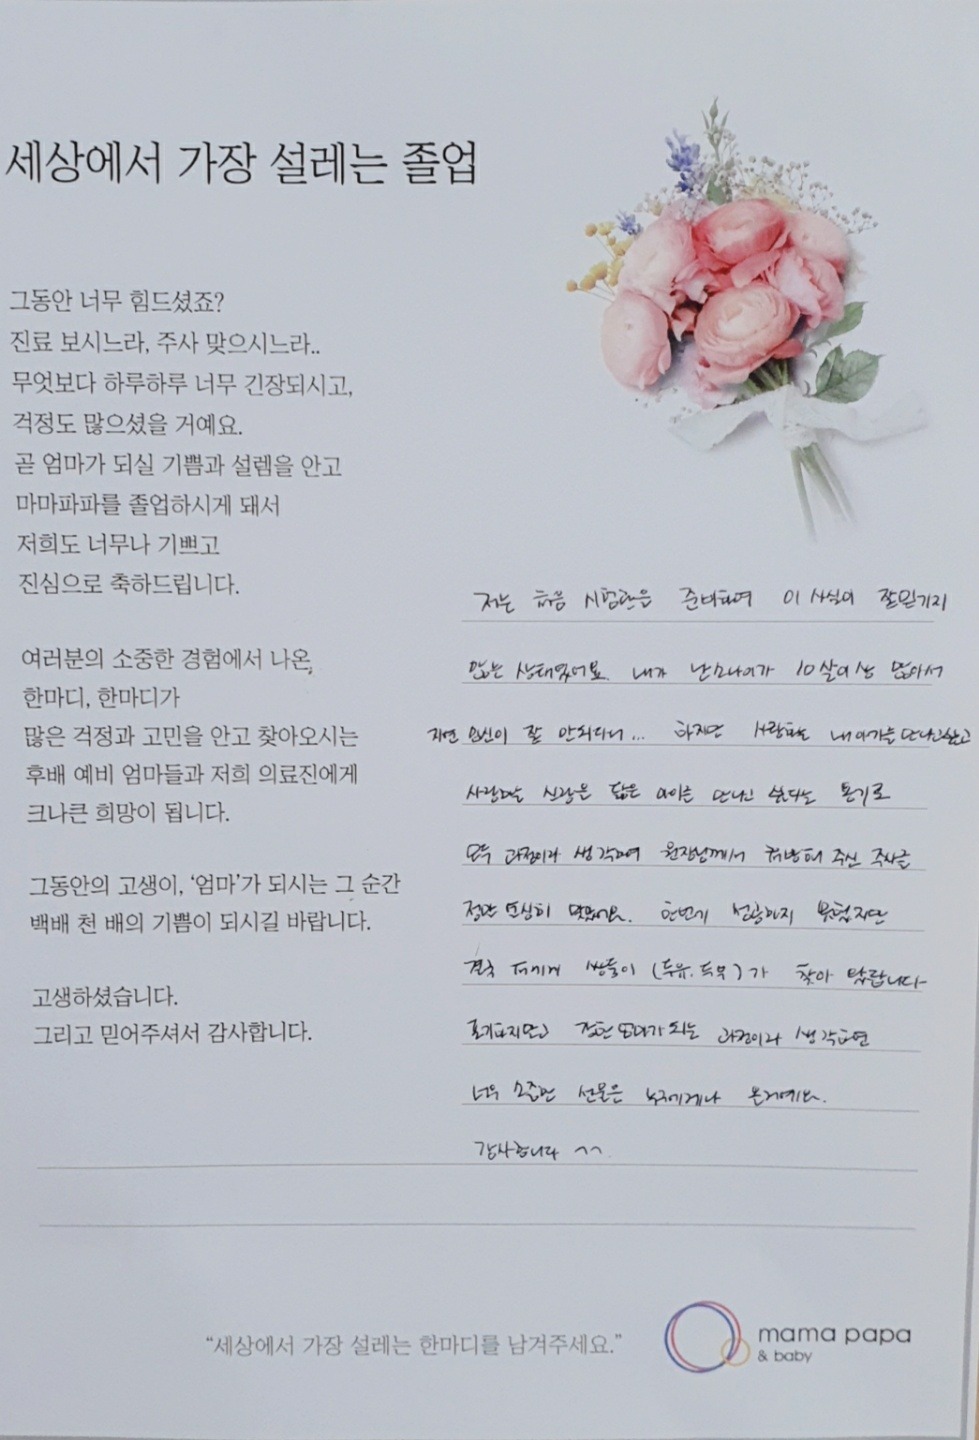 세상에서 가장 설레는 졸업
그동안 너무 힘드셨죠?
진료 보시느라, 주사 맞으시느라..
무엇보다 하루하루 너무 긴장되시고,
걱정도 많으셨을 거예요.
곧 엄마가 되실 기쁨과 설렘을 안고
마마파파를 졸업하시게 돼서
저희도 너무나 기쁘고
진심으로 축하드립니다.
여러분의 소중한 경험에서 나온,
한마디, 한마디가
많은 걱정과 고민을 안고 찾아오시는
후배 예비 엄마들과 저희 의료진에게
크나큰 희망이 됩니다.
그동안의 고생이, '엄마'가 되시는 그 순간
백배 천 배의 기쁨이 되시길 바랍니다.
고생하셨습니다.
그리고 믿어주셔서 감사합니다.
저는 처음 시험관을 준비하며 이 사실이 잘믿기지
않는 상태였어요. 내가 난소나이가 10살이상 많아서
자연 임신이 잘 안되다니... 하지만 사랑하는 내아가를 만나고싶고
사랑하는 신랑을 닮은 아이를 만나고 싶다는 용기로
모두 과정이라 생각하며 원장님께서 처방해 주신 주사를
정말 열심히 맞았어요. 한번에 성공하지 못했지만
결국 저에게 쌍둥이 (두유, 두부)가 찾아 왔답니다
포기하지말고 엄마가 되는 과정이라 생각하면
너무 소중한 선물은 누구에게나 올거예요.
감사합니다 ^^
"세상에서 가장 설레는 한마디를 남겨주세요."
mama papa
& baby